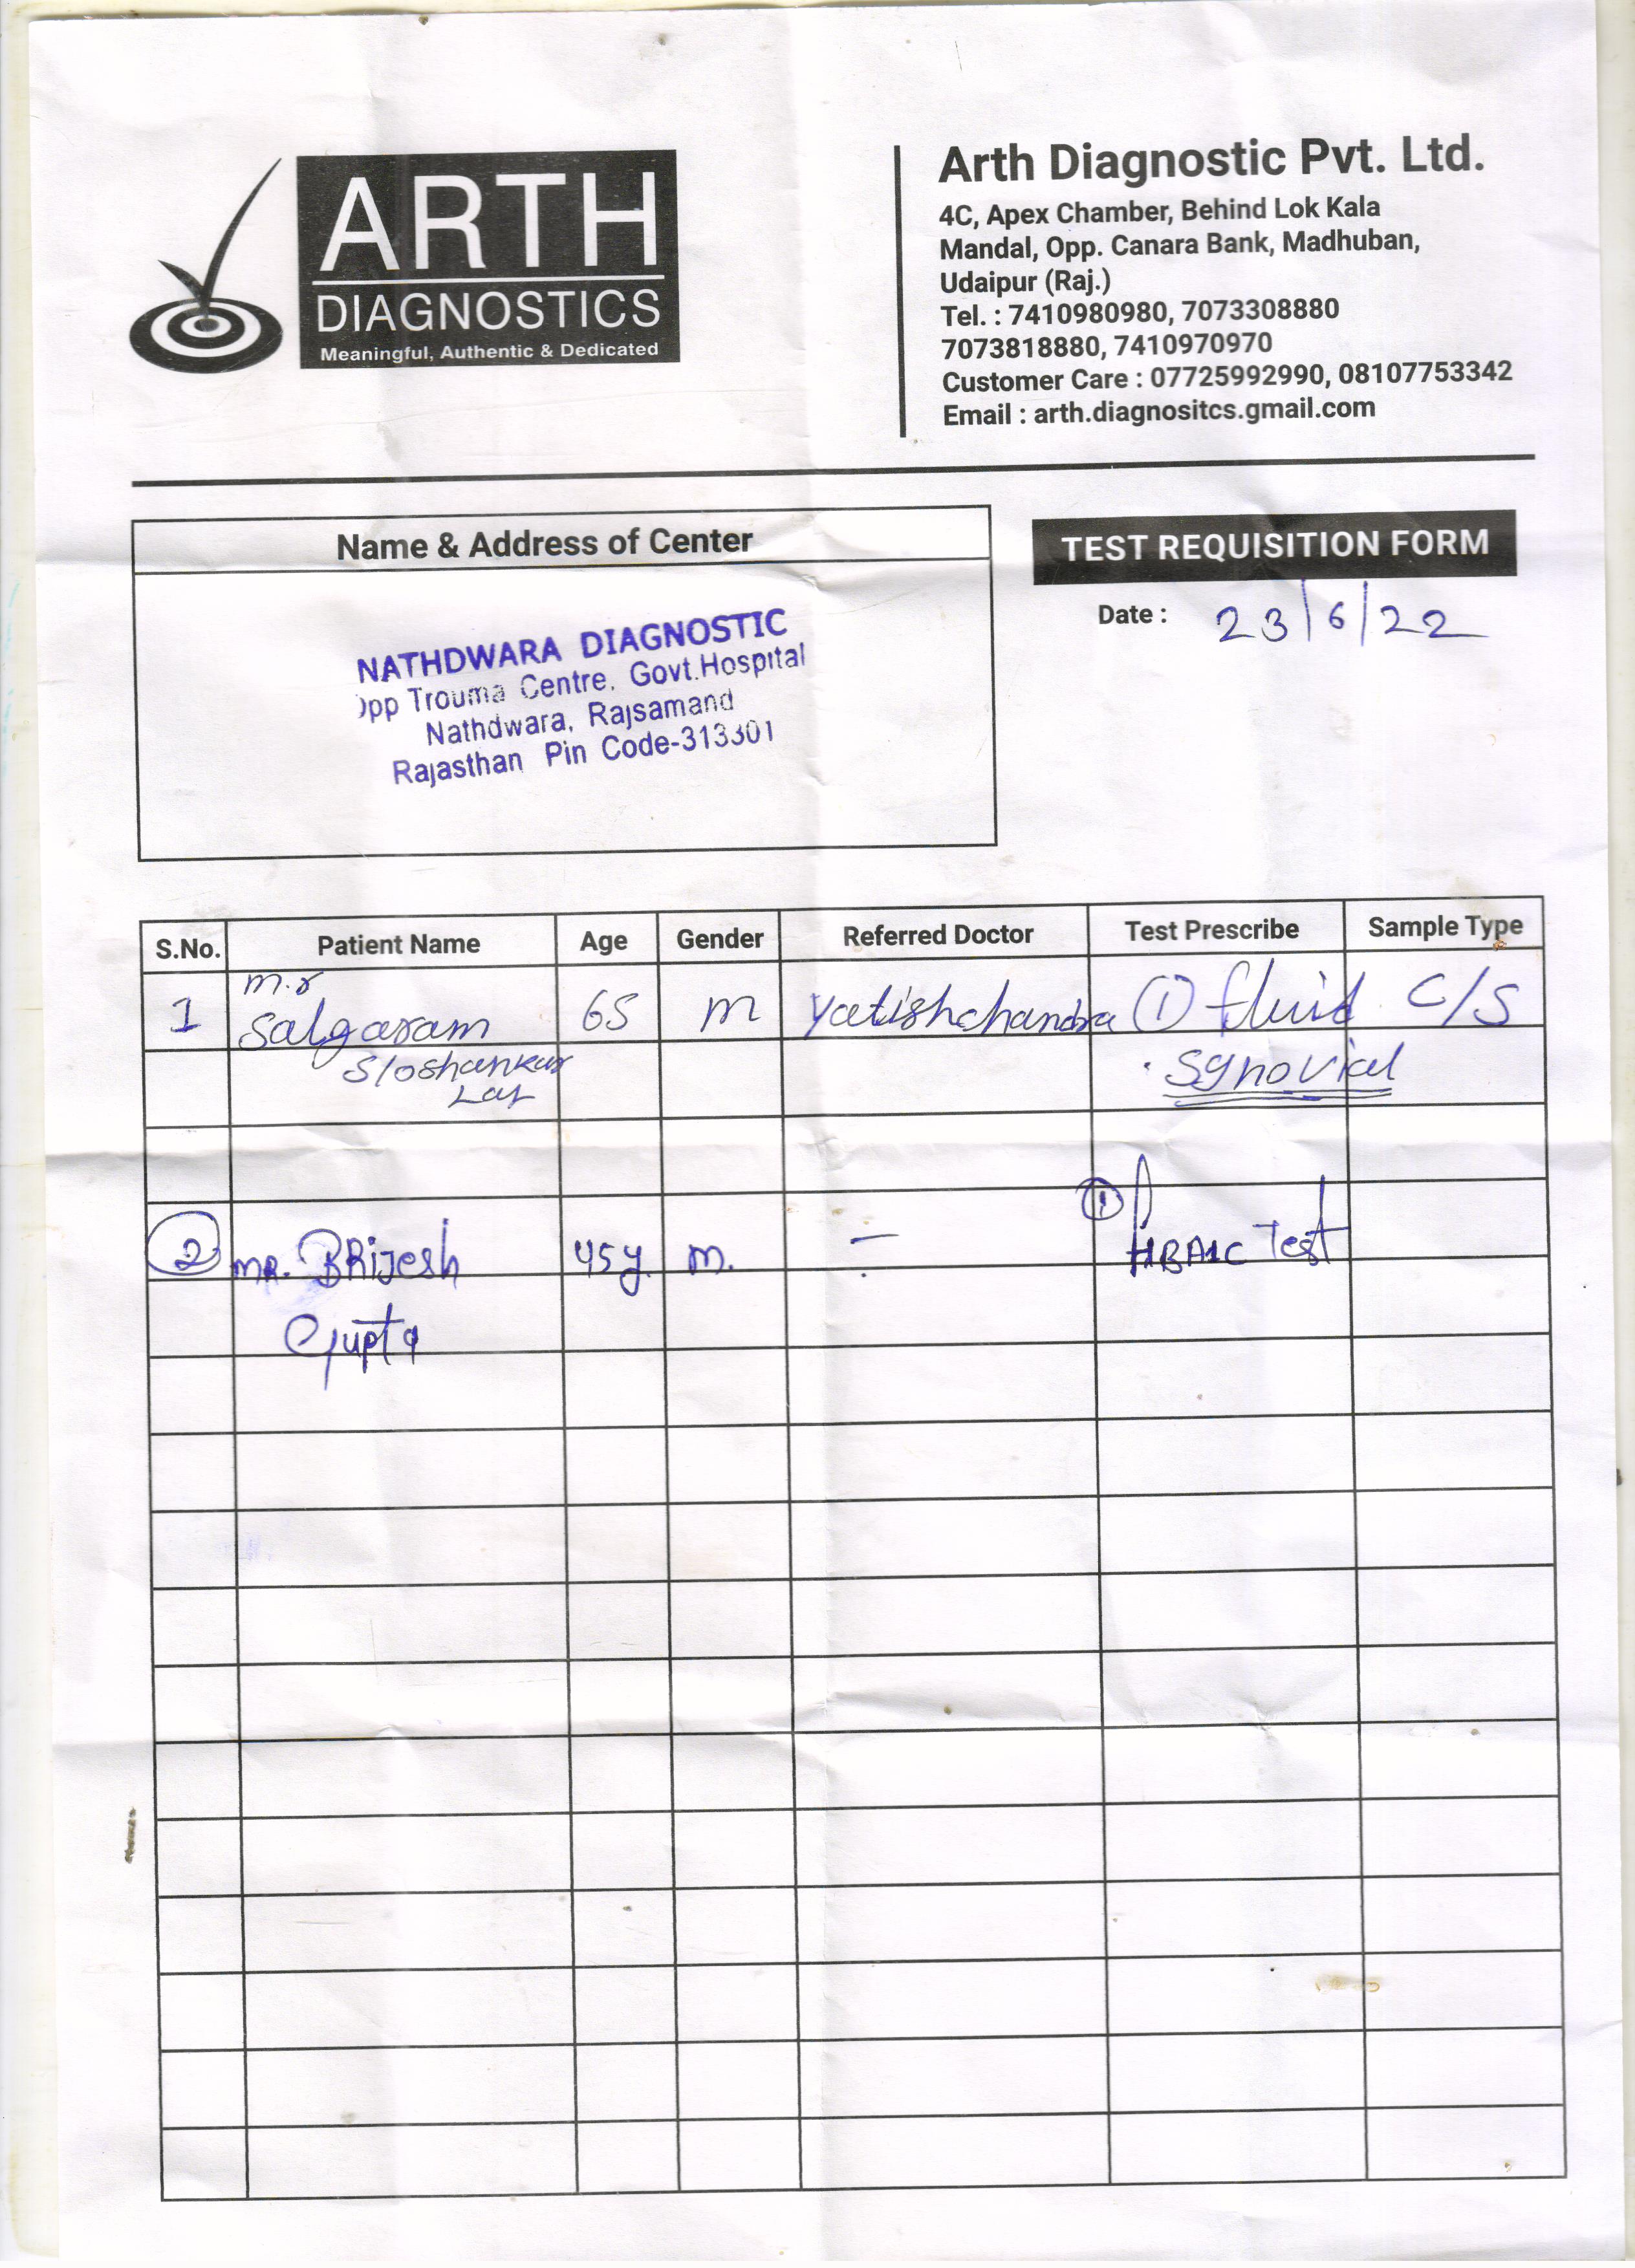 ARTH
DIAGNOSTICS
Meaningful, Authentic & Dedicated
Arth Diagnostic Pvt. Ltd.
4C, Apex Chamber, Behind Lok Kala
Mandal, Opp. Canara Bank, Madhuban,
Udaipur (Raj.)
Tel. : 7410980980, 7073308880
7073818880, 7410970970
Customer Care : 07725992990, 08107753342
Email : arth.diagnositcs.gmail.com
Name & Address of Center
NATHDWARA DIAGNOSTIC
Opp Trouma Centre, Govt.Hospital
Nathdwara, Rajsamand
Rajasthan Pin Code-313301
TEST REQUISITION FORM
Date : 23/6/22
S.No. Patient Name Age Gender Referred Doctor Test Prescribe Sample Type
m.r
1 Salgaram 65 m yatishchandra (1) fluid C/S
S/o shankar Synovial
Lal
2 MR. BRijesh 45y m. — (1) HBA1C Test
Gupta